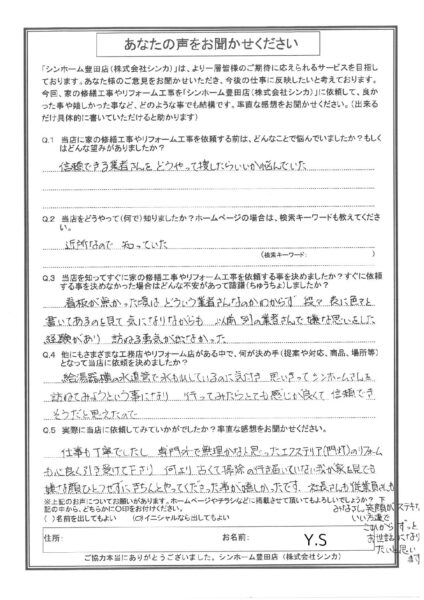 あなたの声をお聞かせください
「シンホーム豊田店(株式会社シンカ)」は、より一層皆様のご期待に応えられるサービスを目指し
ております。あなた様のご意見をお聞かせいただき、今後の仕事に反映したいと考えております。
今回、家の修繕工事やリフォーム工事を「シンホーム豊田店(株式会社シンカ)」に依頼して、良か
った事や嬉しかった事など、どのような事でも結構です。率直な感想をお聞かせください。(出来る
だけ具体的に書いていただけると助かります)
Q.1 当店に家の修繕工事やリフォーム工事を依頼する前は、どんなことで悩んでいましたか?もしく
はどんな望みがありましたか?
信頼できる業者さんを どうやって探したらいいか悩んでいた
Q.2 当店をどうやって(何で)知りましたか?ホームページの場合は、検索キーワードも教えてくださ
い。
近所なので 知っていた
(検索キーワード: )
Q.3 当店を知ってすぐに家の修繕工事やリフォーム工事を依頼する事を決めましたか?すぐに依頼
する事を決めなかった場合はどんな不安があって躊躇(ちゅうちょ)しましたか?
看板が無かった頃は どういう業者さんなのかわからず 段々 表に色々と
書いてあるのを見て 気になりながらも 以前 別の業者さんで嫌な思いをした
経験があり 訪ねる勇気が出なかった
Q.4 他にもさまざまな工務店やリフォーム店がある中で、何が決め手(提案や対応、商品、場所等)
となって当店に依頼を決めましたか?
給湯器横の水道管で水もれしているのに気付き 思いきって シンホームさんを
訪ねてみようという事になり 行ってみたらとても感じが良くて 信頼でき
そうだと思えたので
Q.5 実際に当店に依頼してみていかがでしたか?率直な感想をお聞かせください。
仕事も丁寧でしたし 専門外で無理かなと思ったエクステリア(門灯)のリフォーム
も心良く引き受けて下さり 何より 古くて掃除の行き届いていない我が家を見ても
嫌な顔ひとつせずにきちんとやってくださった事が嬉しかったです。社長さんも従業員さんも
みなさん 笑顔がステキで
いい方達で
これからもずっと
お世話になり
たいと思い
ます
※上記のお声についてお願いがあります。ホームページやチラシなどに掲載させて頂いてもよろしいでしょうか? 下
記の中から、どちらかに○印をお付けください。
( )名前を出してもよい (○)イニシャルなら出してもよい
住所: お名前: Y.S
ご協力本当にありがとうございました。シンホーム豊田店 (株式会社シンカ)